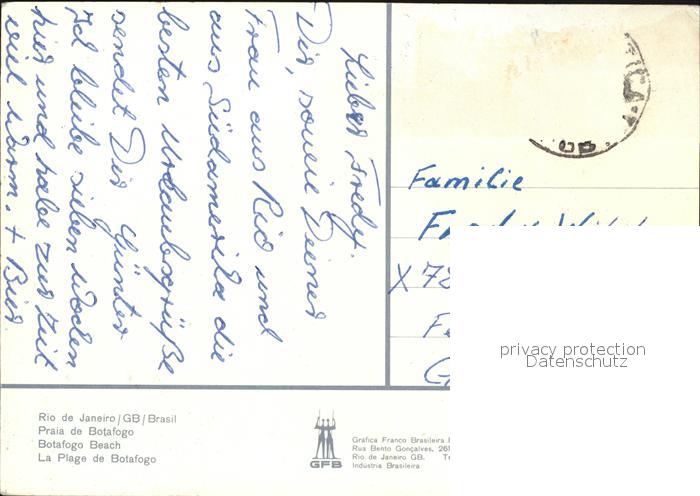 Lieber Fredy.
Dir, sowie Deiner
Frau aus Rio und
aus Südamerika die
besten Urlaubsgrüße
sendet Dir Günter
Ich bleibe sieben Wochen
hier und habe zur Zeit
viel Wärm. + Bier.
Familie
X 78
GB
Rio de Janeiro/GB/Brasil
Praia de Botafogo
Botafogo Beach
La Plage de Botafogo
GFB
Gráfica Franco Brasileira
Rua Bento Gonçalves, 261
Rio de Janeiro GB. Te
Indústria Brasileira
privacy protection
Datenschutz